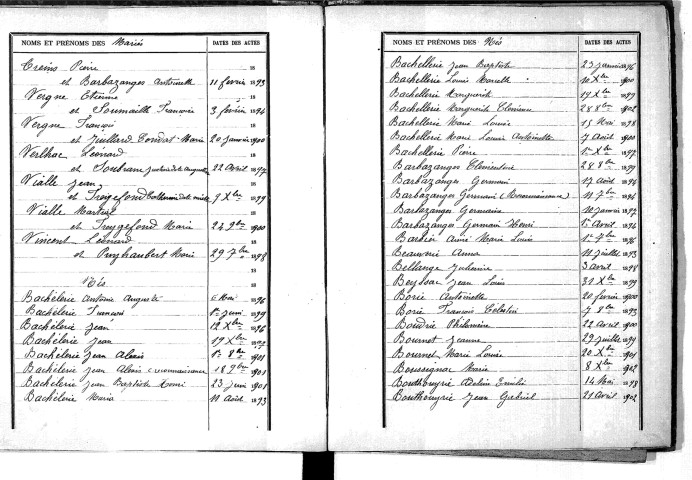 NOMS ET PRÉNOMS DES Mariés DATES DES ACTES
Treins Pierre 18
et Barbazanges Antoinette 11 février 1893
Vergne Etienne
et Soumaille Francoise 3 février 1894
Vergne François 18
et Juillard Marie 20 janvier 1900
Verlhac Léonard 18
et Soubran 22 Avril 1897
Vialle Jean 18
et Treyzefond 9 Xbre 1899
Vialle Martial 18
et Treyzefond Marie 24 9bre 1900
Vincent Léonard 18
et Puyhaubert Marie 29 7bre 1898
18
Nés 18
Bachèlerie Antoine Auguste Mai 1896
Bachèlerie François 1er juin 1899
Bachèlerie Jean 12 Xbre 1896
Bachèlerie Jean 19 Xbre
Bachèlerie Jean Alexis 1er 8bre 1901
Bachèlerie Jean Alexis (reconnaissance) 18 9bre 1901
Bachèlerie Jean Baptiste Henri 23 juin 1901
Bachèlerie Maria 11 Août 1893
NOMS ET PRÉNOMS DES Nés DATES DES ACTES
Bachellerie Jean Baptiste 23 janvier 1896
Bachellerie Louis 10 Xbre 1900
Bachellerie Marguerite 19 Xbre 1899
Bachellerie Marguerite Clémence 28 8bre 1902
Bachellerie Marie Louise 15 Mai 1898
Bachellerie Marie Louise Antoinette 7 Août 1900
Bachellerie Pierre 1er Xbre 1897
Barbazanges Clémentine 28 8bre 1899
Barbazanges Germain 17 Août 1894
Barbazanges Germain (Reconnaissance) 11 7bre 1894
Barbazanges Germaine 10 janvier 1897
Barbazanges Germain Henri Avril 1894
Barbier Marie Louise 1er 7bre 1896
Beauvrie Anna 11 juillet 1893
Bellange 3 avril 1898
Beyssac Jean Louis 31 Xbre 1899
Borie Antoinette 20 février 1900
Borie François Célestin 7 8bre 1893
Boudrie Philomène 22 avril 1900
Bournet Jeanne 29 juillet 1899
Bournet Marie Louise 20 Xbre 1901
Boussignac Marie 8 Xbre 1902
Bouthouyrie Emilie 14 Mai 1898
Bouthouyrie Jean Gabriel 21 Avril 1902